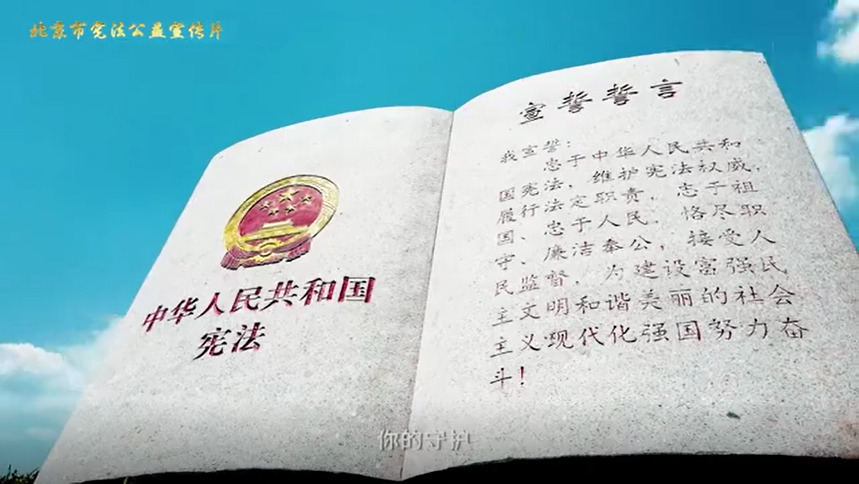 北京市宪法公益宣传片
中华人民共和国
宪法
宣誓誓言
我宣誓：
忠于中华人民共和
国宪法，维护宪法权威，
履行法定职责，忠于祖
国、忠于人民，恪尽职
守、廉洁奉公，接受人
民监督，为建设富强民
主文明和谐美丽的社会
主义现代化强国努力奋
斗！
你的守护